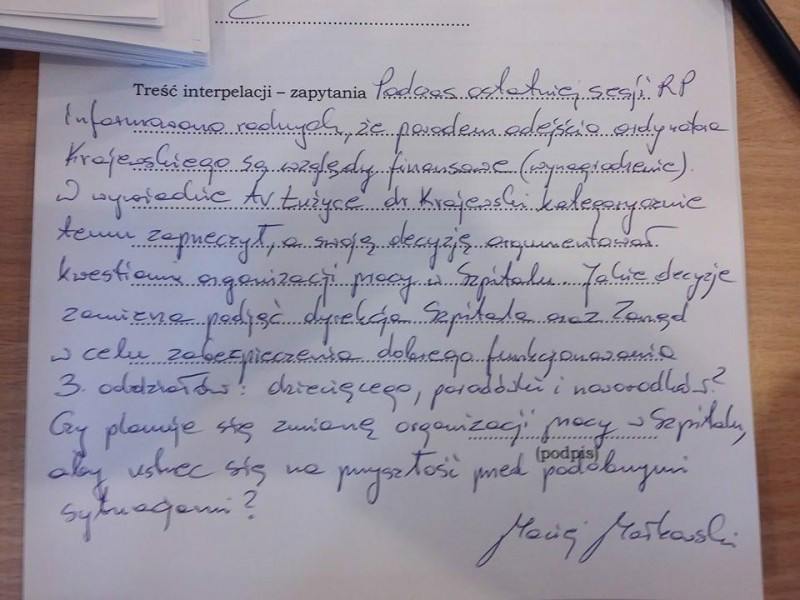 Treść interpelacji – zapytania Podczas ostatniej sesji RP
informowano radnych, że powodem odejścia ordynatora
Krajewskiego są względy finansowe (wynagrodzenie).
W wywiadzie TV Łużyce dr. Krajewski kategorycznie
temu zaprzeczył, a swoją decyzję argumentował
kwestiami organizacji pracy w Szpitalu. Jakie decyzje
zamierza podjąć dyrekcja Szpitala oraz Zarząd
w celu zabezpieczenia dobrego funkcjonowania
3. oddziałów: dziecięcego, porodówki i noworodków?
Czy planuje się zmianę organizacji pracy w Szpitalu,
(podpis)
aby ustrzec się na przyszłość przed podobnymi
sytuacjami?
Maciej Małkowski